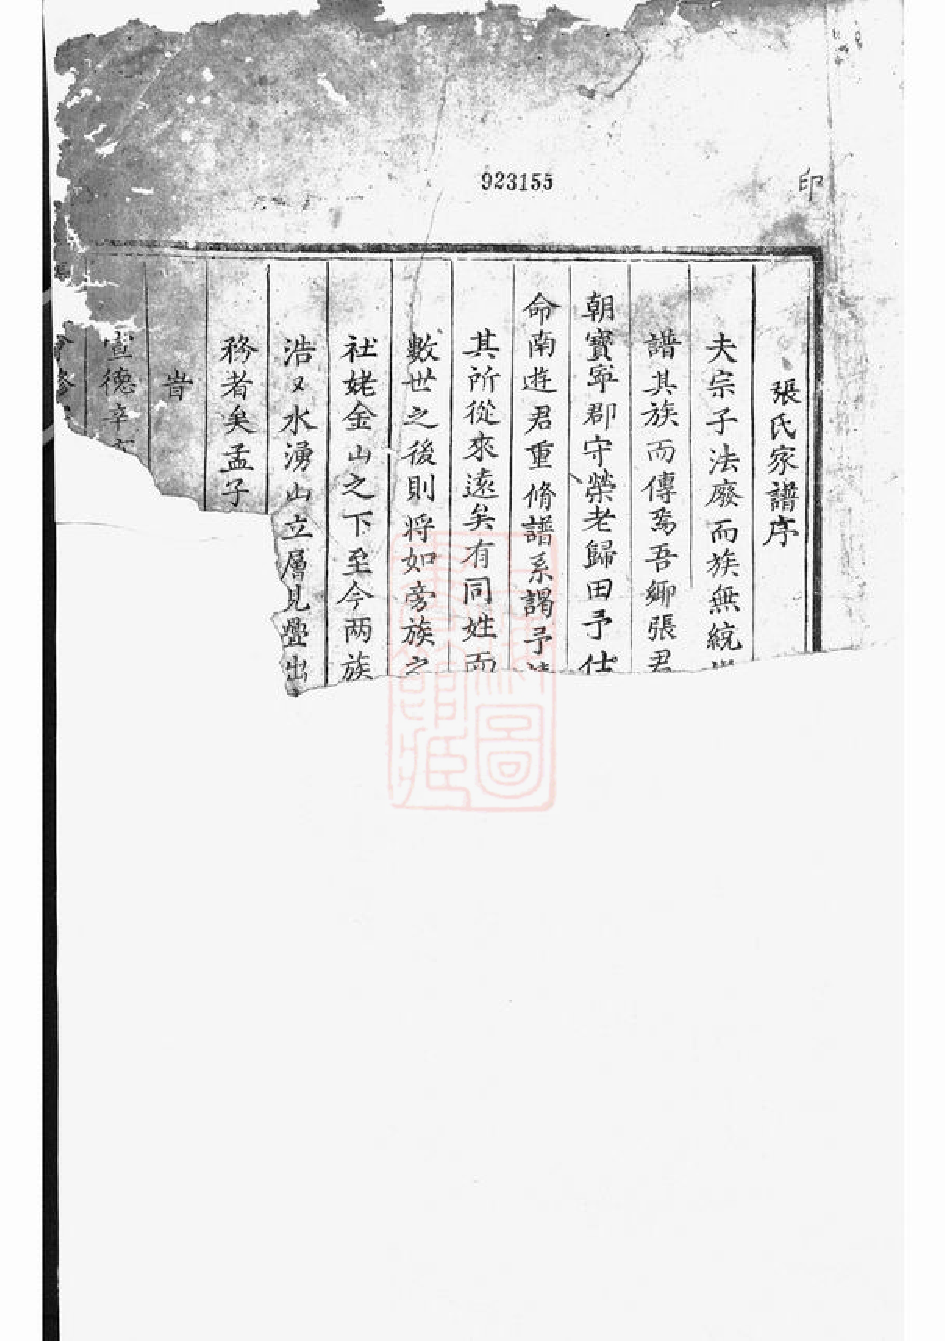 923155
印
張氏家譜序
夫宗子法廢而族無統
譜其族而傳焉吾鄉張君
朝寳寜郡守榮老歸田予仕
命南遊君重脩譜系謁予
其所從來遠矣有同姓而
數世之後則将如旁族之
社姥金山之下至今两族
浩又水湧山立層見疊出
務者矣孟子
旹
宣德辛